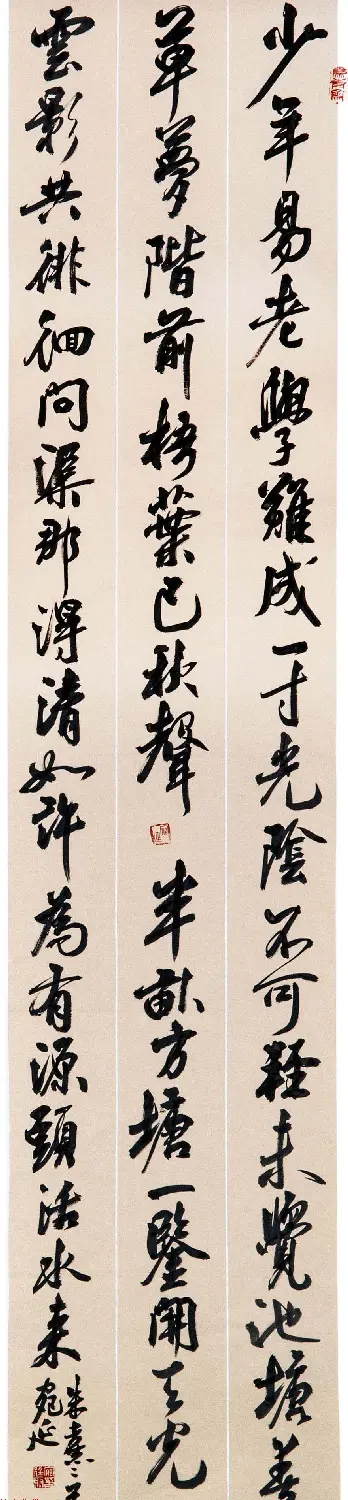 少年易老學難成一寸光陰不可輕未覺池塘春
草夢階前梧葉已秋聲 半畝方塘一鑒開天光
雲影共徘徊問渠那得清如許為有源頭活水来
朱熹二首
宛延